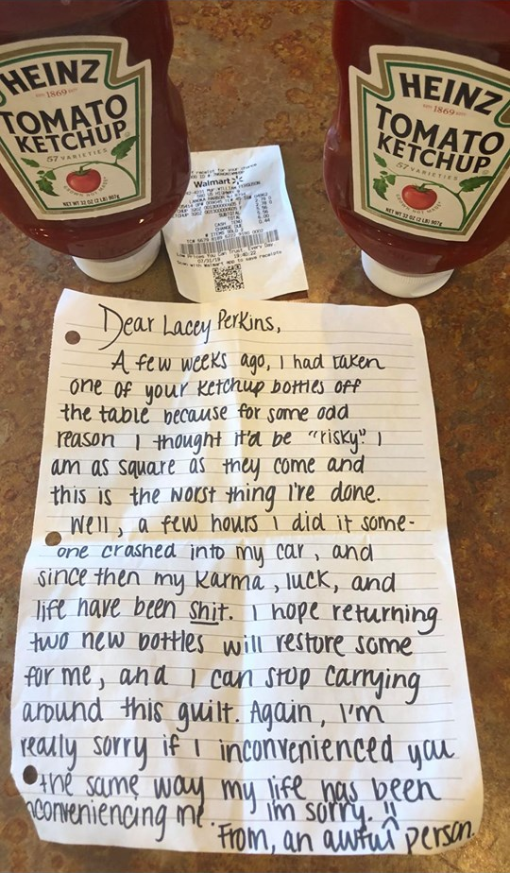 HEINZ
EST 1869
TOMATO
KETCHUP
57 VARIETIES
NET WT 32 OZ (2 LB) 907g
HEINZ
EST 1869
TOMATO
KETCHUP
57 VARIETIES
GROWN NOT MADE
NET WT 32 OZ (2 LB) 907g
Walmart
Low Prices You Can Trust. Every Day.
Dear Lacey Perkins,
A few weeks ago, I had taken
one of your Ketchup bottles off
the table because for some odd
reason I thought it'd be "risky". I
am as square as they come and
this is the worst thing I've done.
Well, a few hours I did it some-
one crashed into my car, and
since then my Karma, luck, and
life have been shit. I hope returning
two new bottles will restore some
for me, and I can stop carrying
around this guilt. Again, I'm
really sorry if I inconvenienced you
the same way my life has been
inconveniencing me. I'm sorry. !!
From, an awful person.